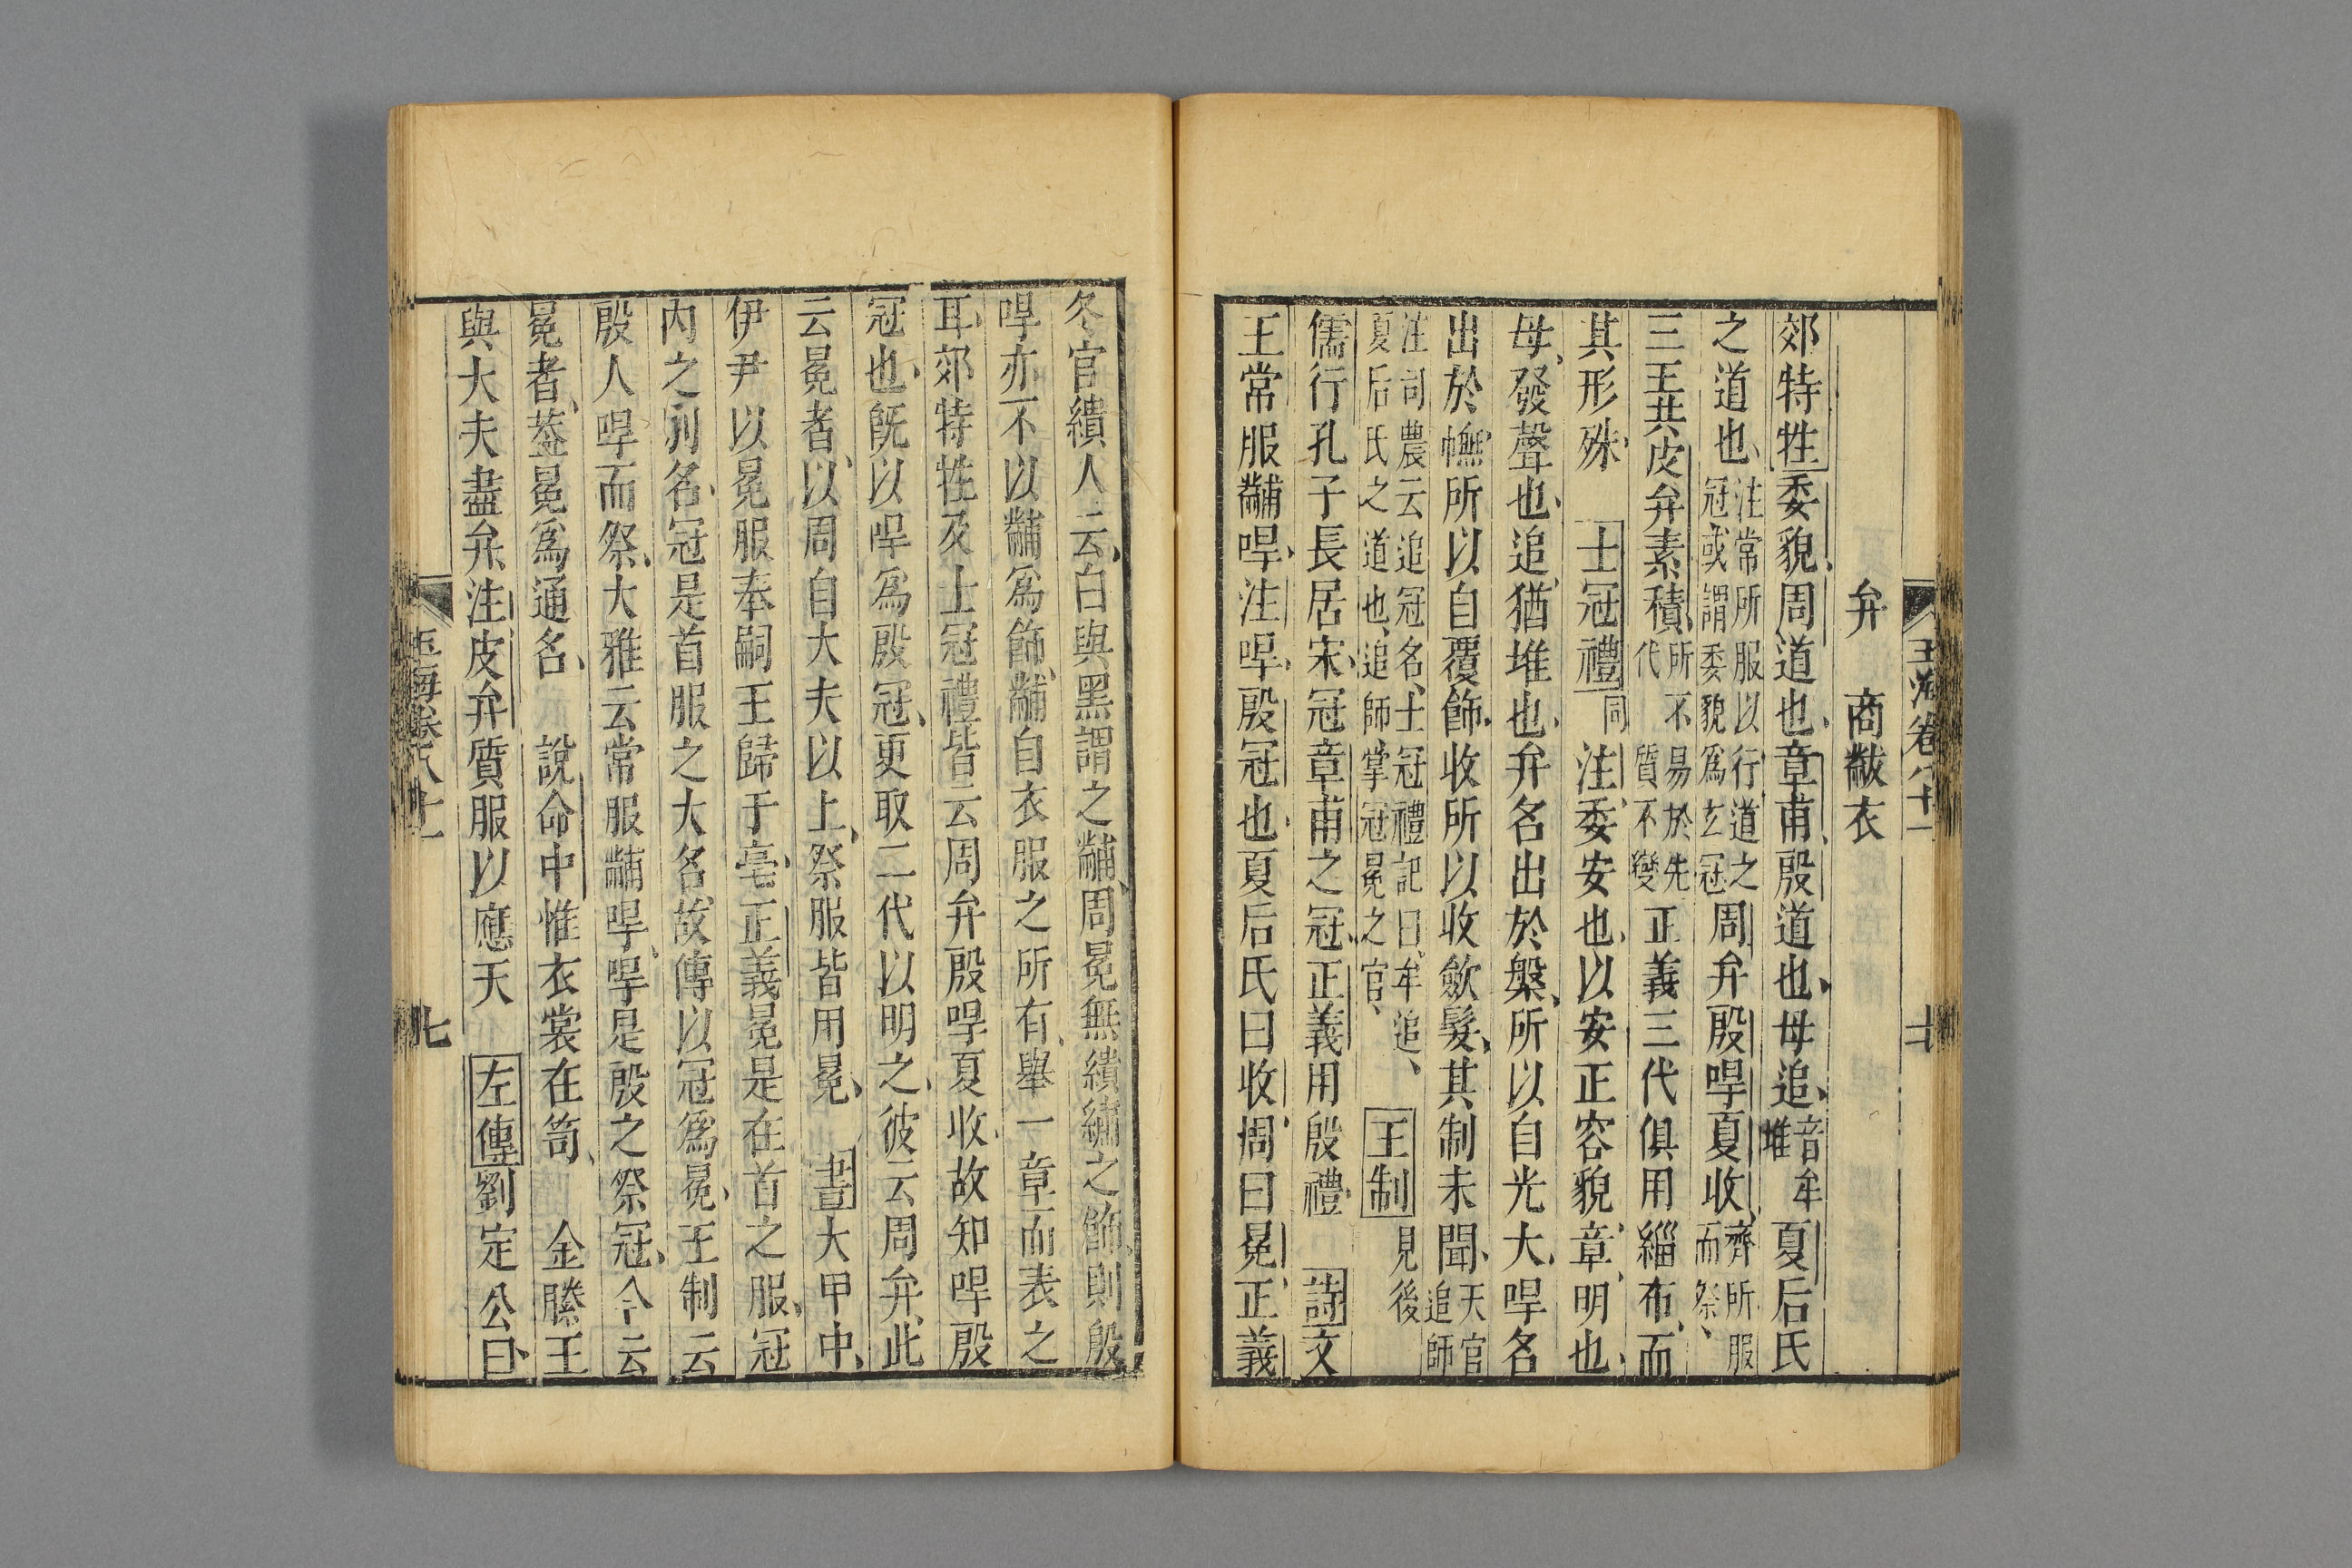 玉海卷八十一
弁　商黻衣
郊特牲委貌周道也章甫殷道也毋追音牟堆夏后氏
之道也注常所服以行道之冠或謂委貌爲玄冠周弁殷哻夏收齊所服而祭
三王共皮弁素積所不易於先代質不變正義三代俱用緇布而
其形殊　士冠禮同注委安也以安正容貌章明也
毋發聲也追猶堆也弁名出於槃所以自光大哻名
出於幠所以自覆飾收所以收斂髮其制未聞天官追師
注司農云追冠名士冠禮記曰牟追夏后氏之道也追師掌冠冕之官　王制見後
儒行孔子長居宋冠章甫之冠正義用殷禮　詩文
王常服黼哻注哻殷冠也夏后氏曰收周曰冕正義
冬官繢人云白與黑謂之黼周冕無繢繡之飾則殷
哻亦不以黼爲飾黼自衣服之所有舉一章而表之
耳郊特牲及士冠禮皆云周弁殷哻夏收故知哻殷
冠也旣以哻爲殷冠更取二代以明之彼云周弁此
云冕者以周自大夫以上祭服皆用冕　書大甲中
伊尹以冕服奉嗣王歸于亳正義冕是在首之服冠
內之別名冠是首服之大名故傳以冠爲冕王制云
殷人哻而祭大雅云常服黼哻哻是殷之祭冠今云
冕者蓋冕爲通名　說命中惟衣裳在笥　金縢王
與大夫盡弁注皮弁質服以應天　左傳劉定公曰
玉海卷八十一